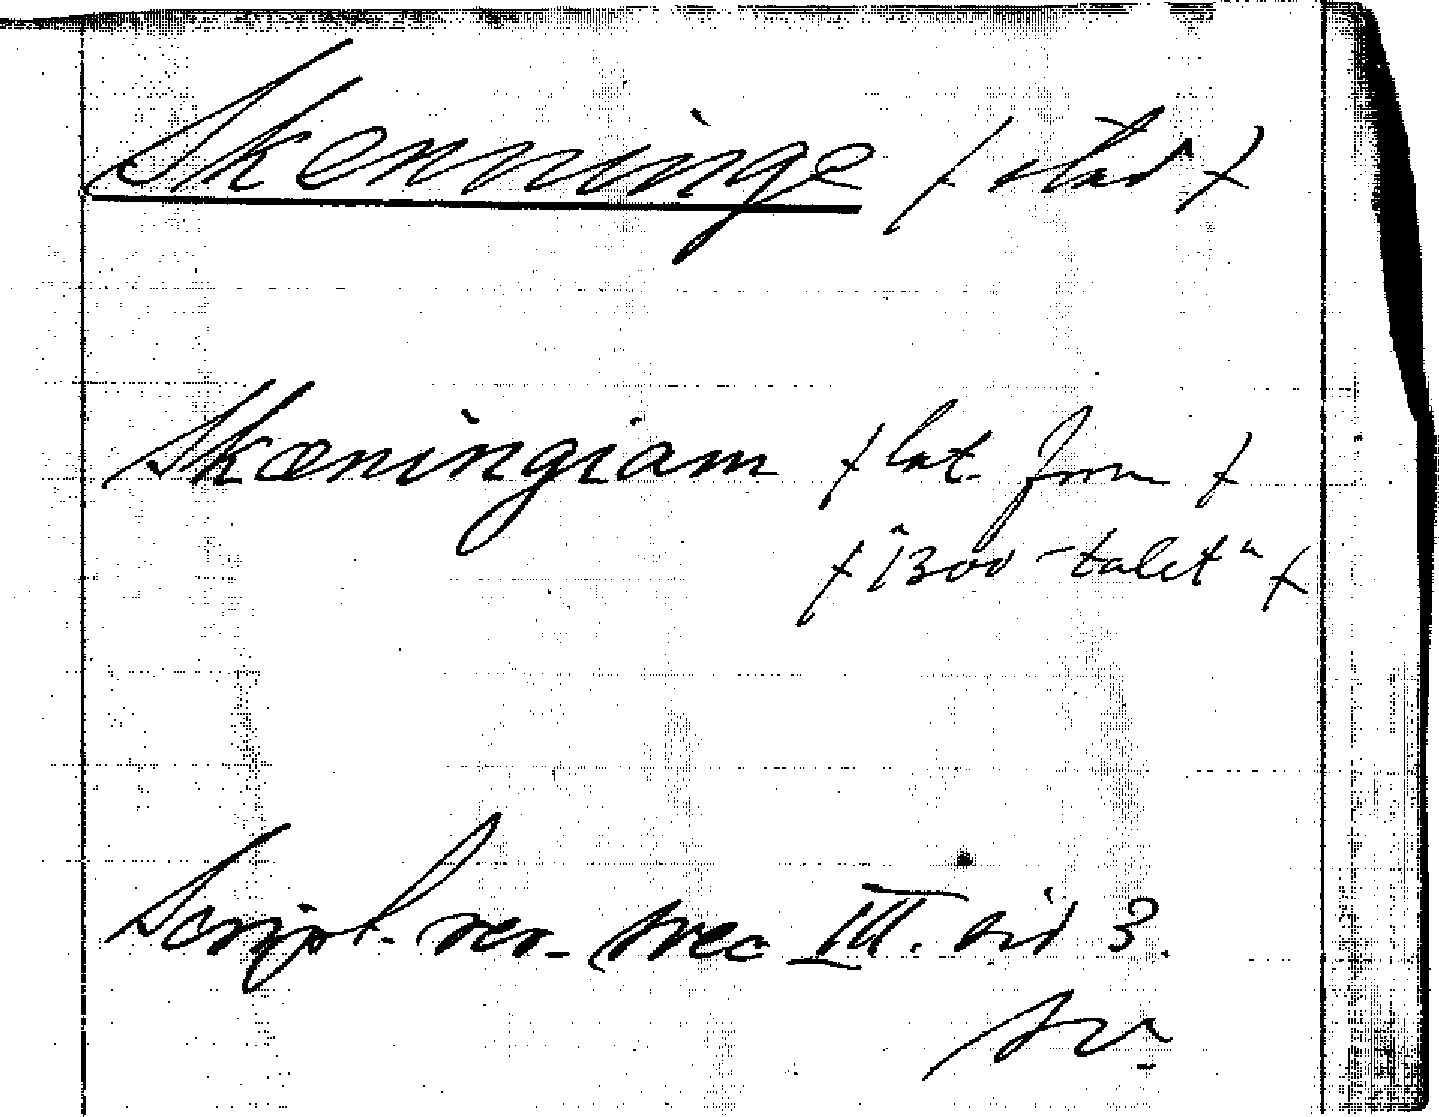 Skenninge / stad /
Skæningiam / lat. form /
/ "1300-talet" /
Script. rer. svec III. sid 3.